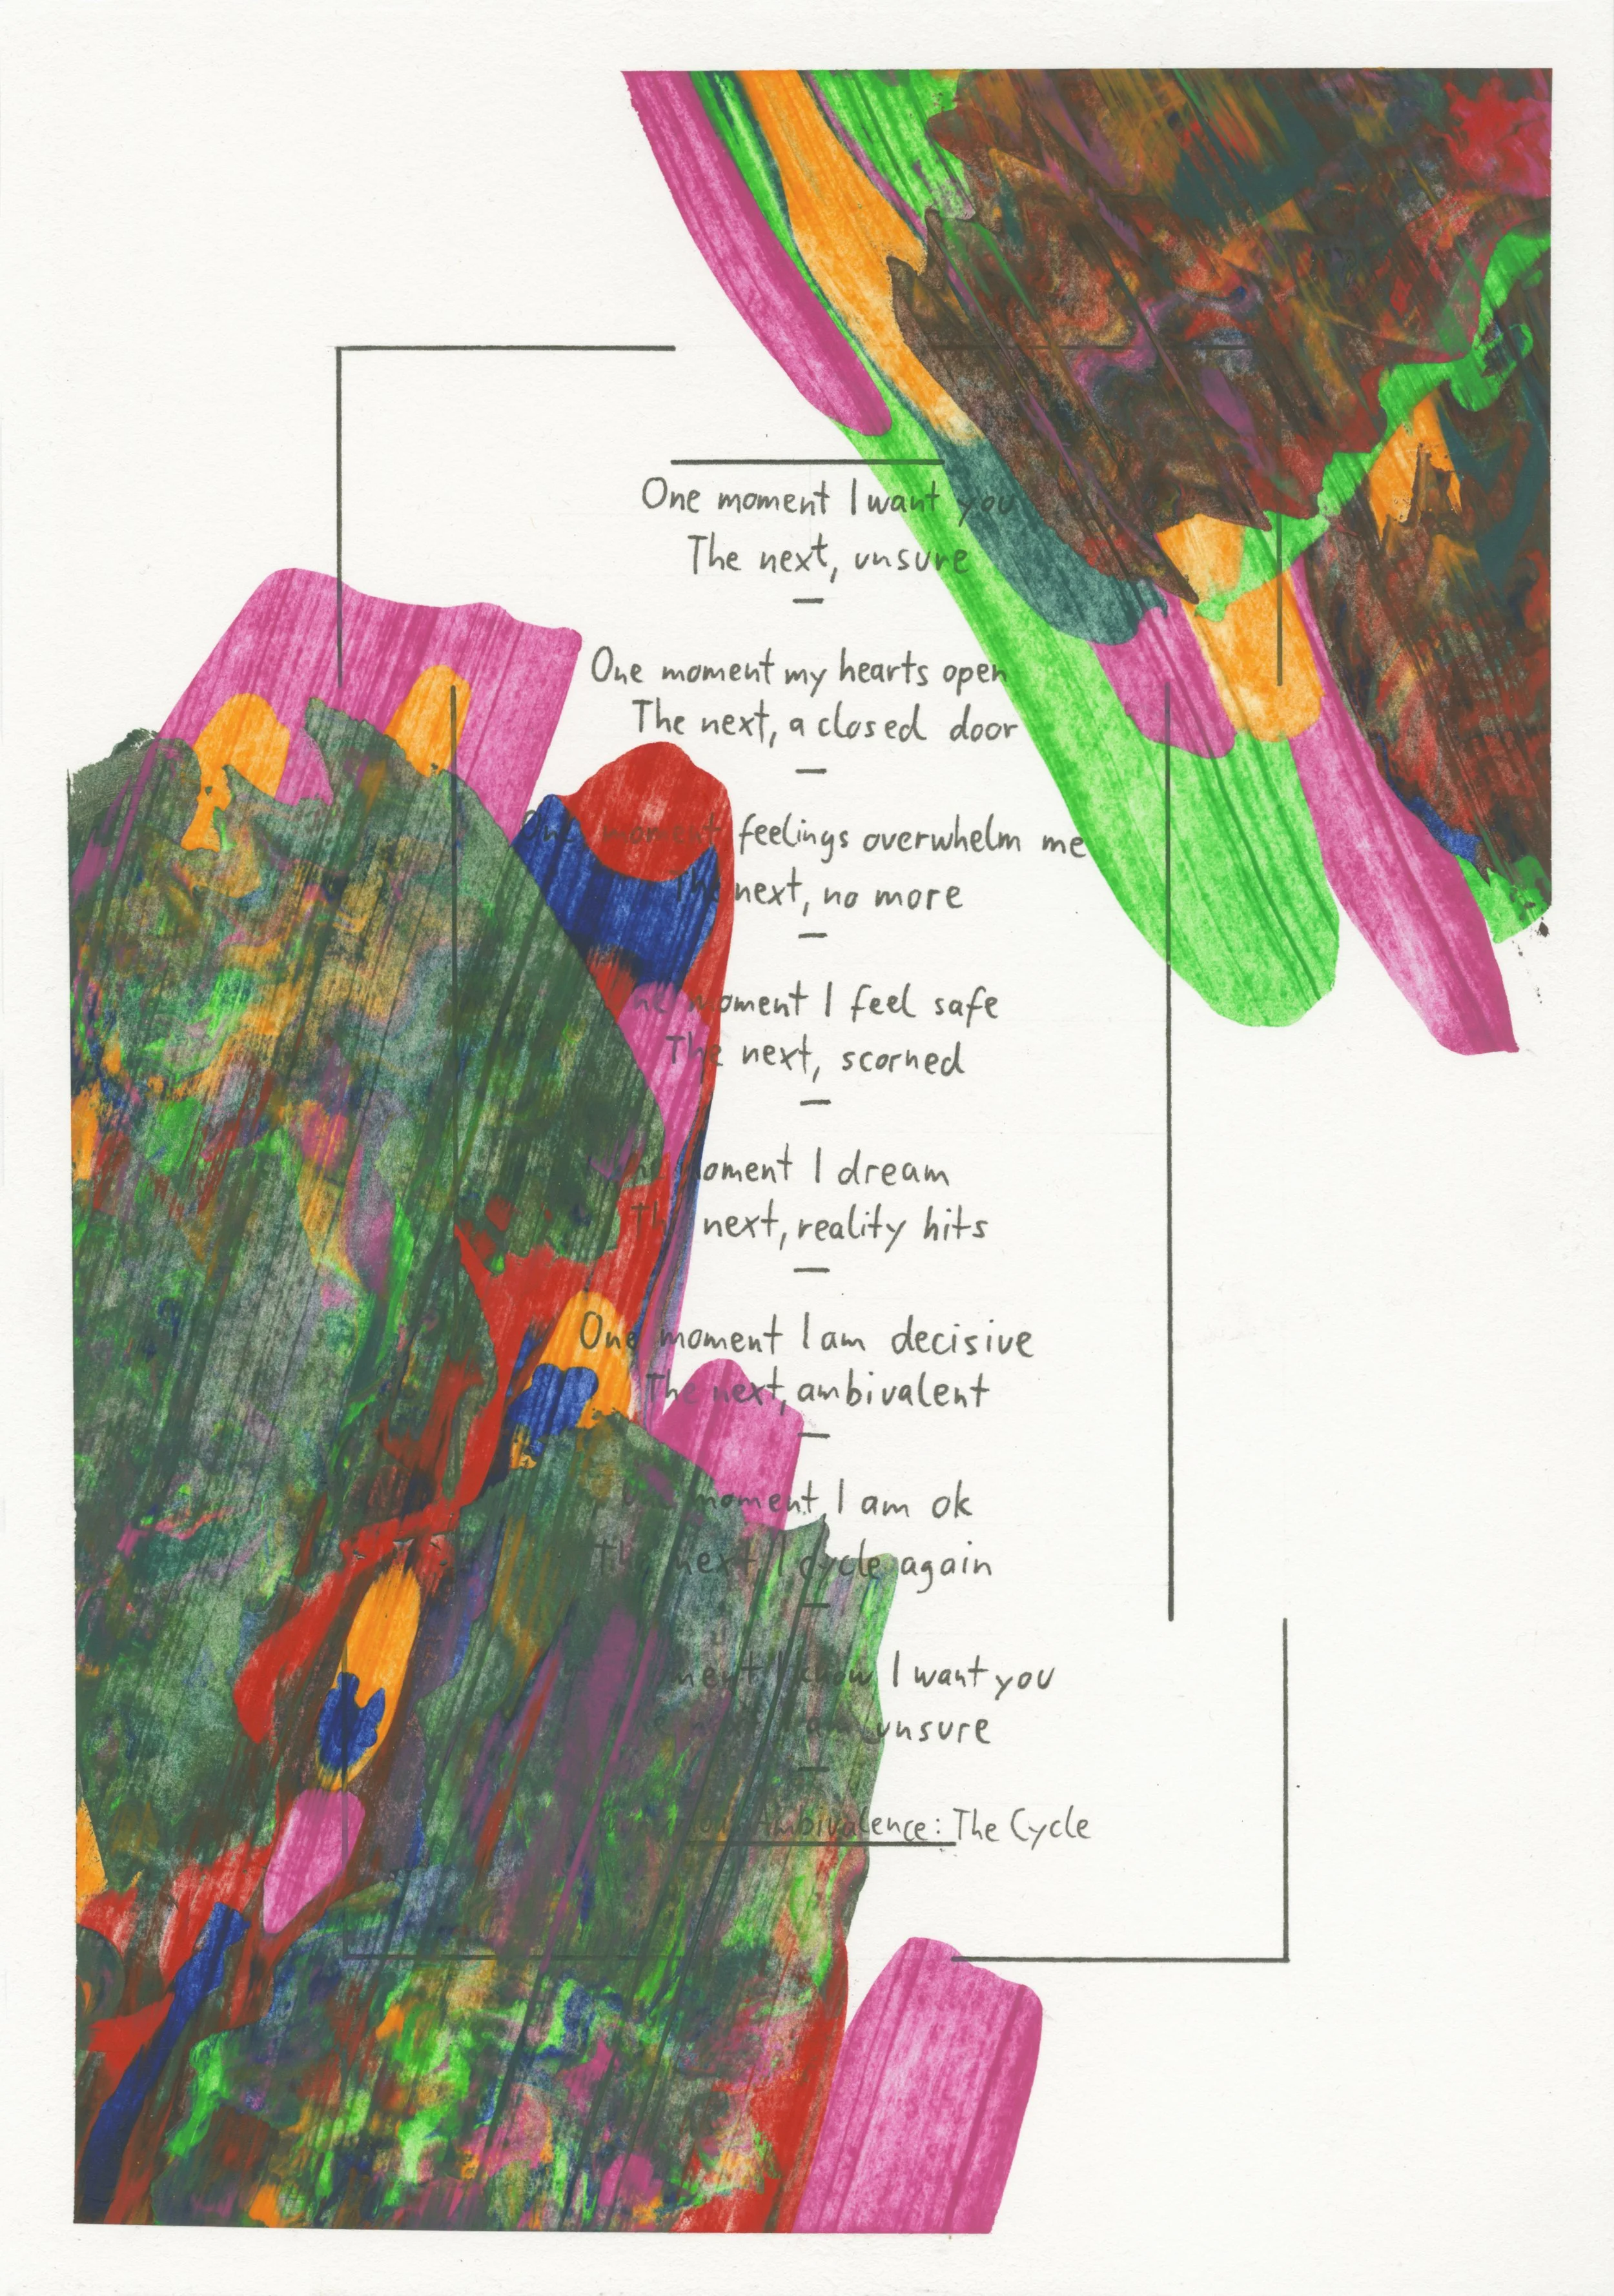 One moment I want you
The next, unsure
One moment my hearts open
The next, a closed door
One moment feelings overwhelm me
The next, no more
One moment I feel safe
The next, scorned
One moment I dream
The next, reality hits
One moment I am decisive
The next, ambivalent
One moment, I am ok
The next, I cycle again
moment I know I want you
next I am unsure
Ambivalence: The Cycle